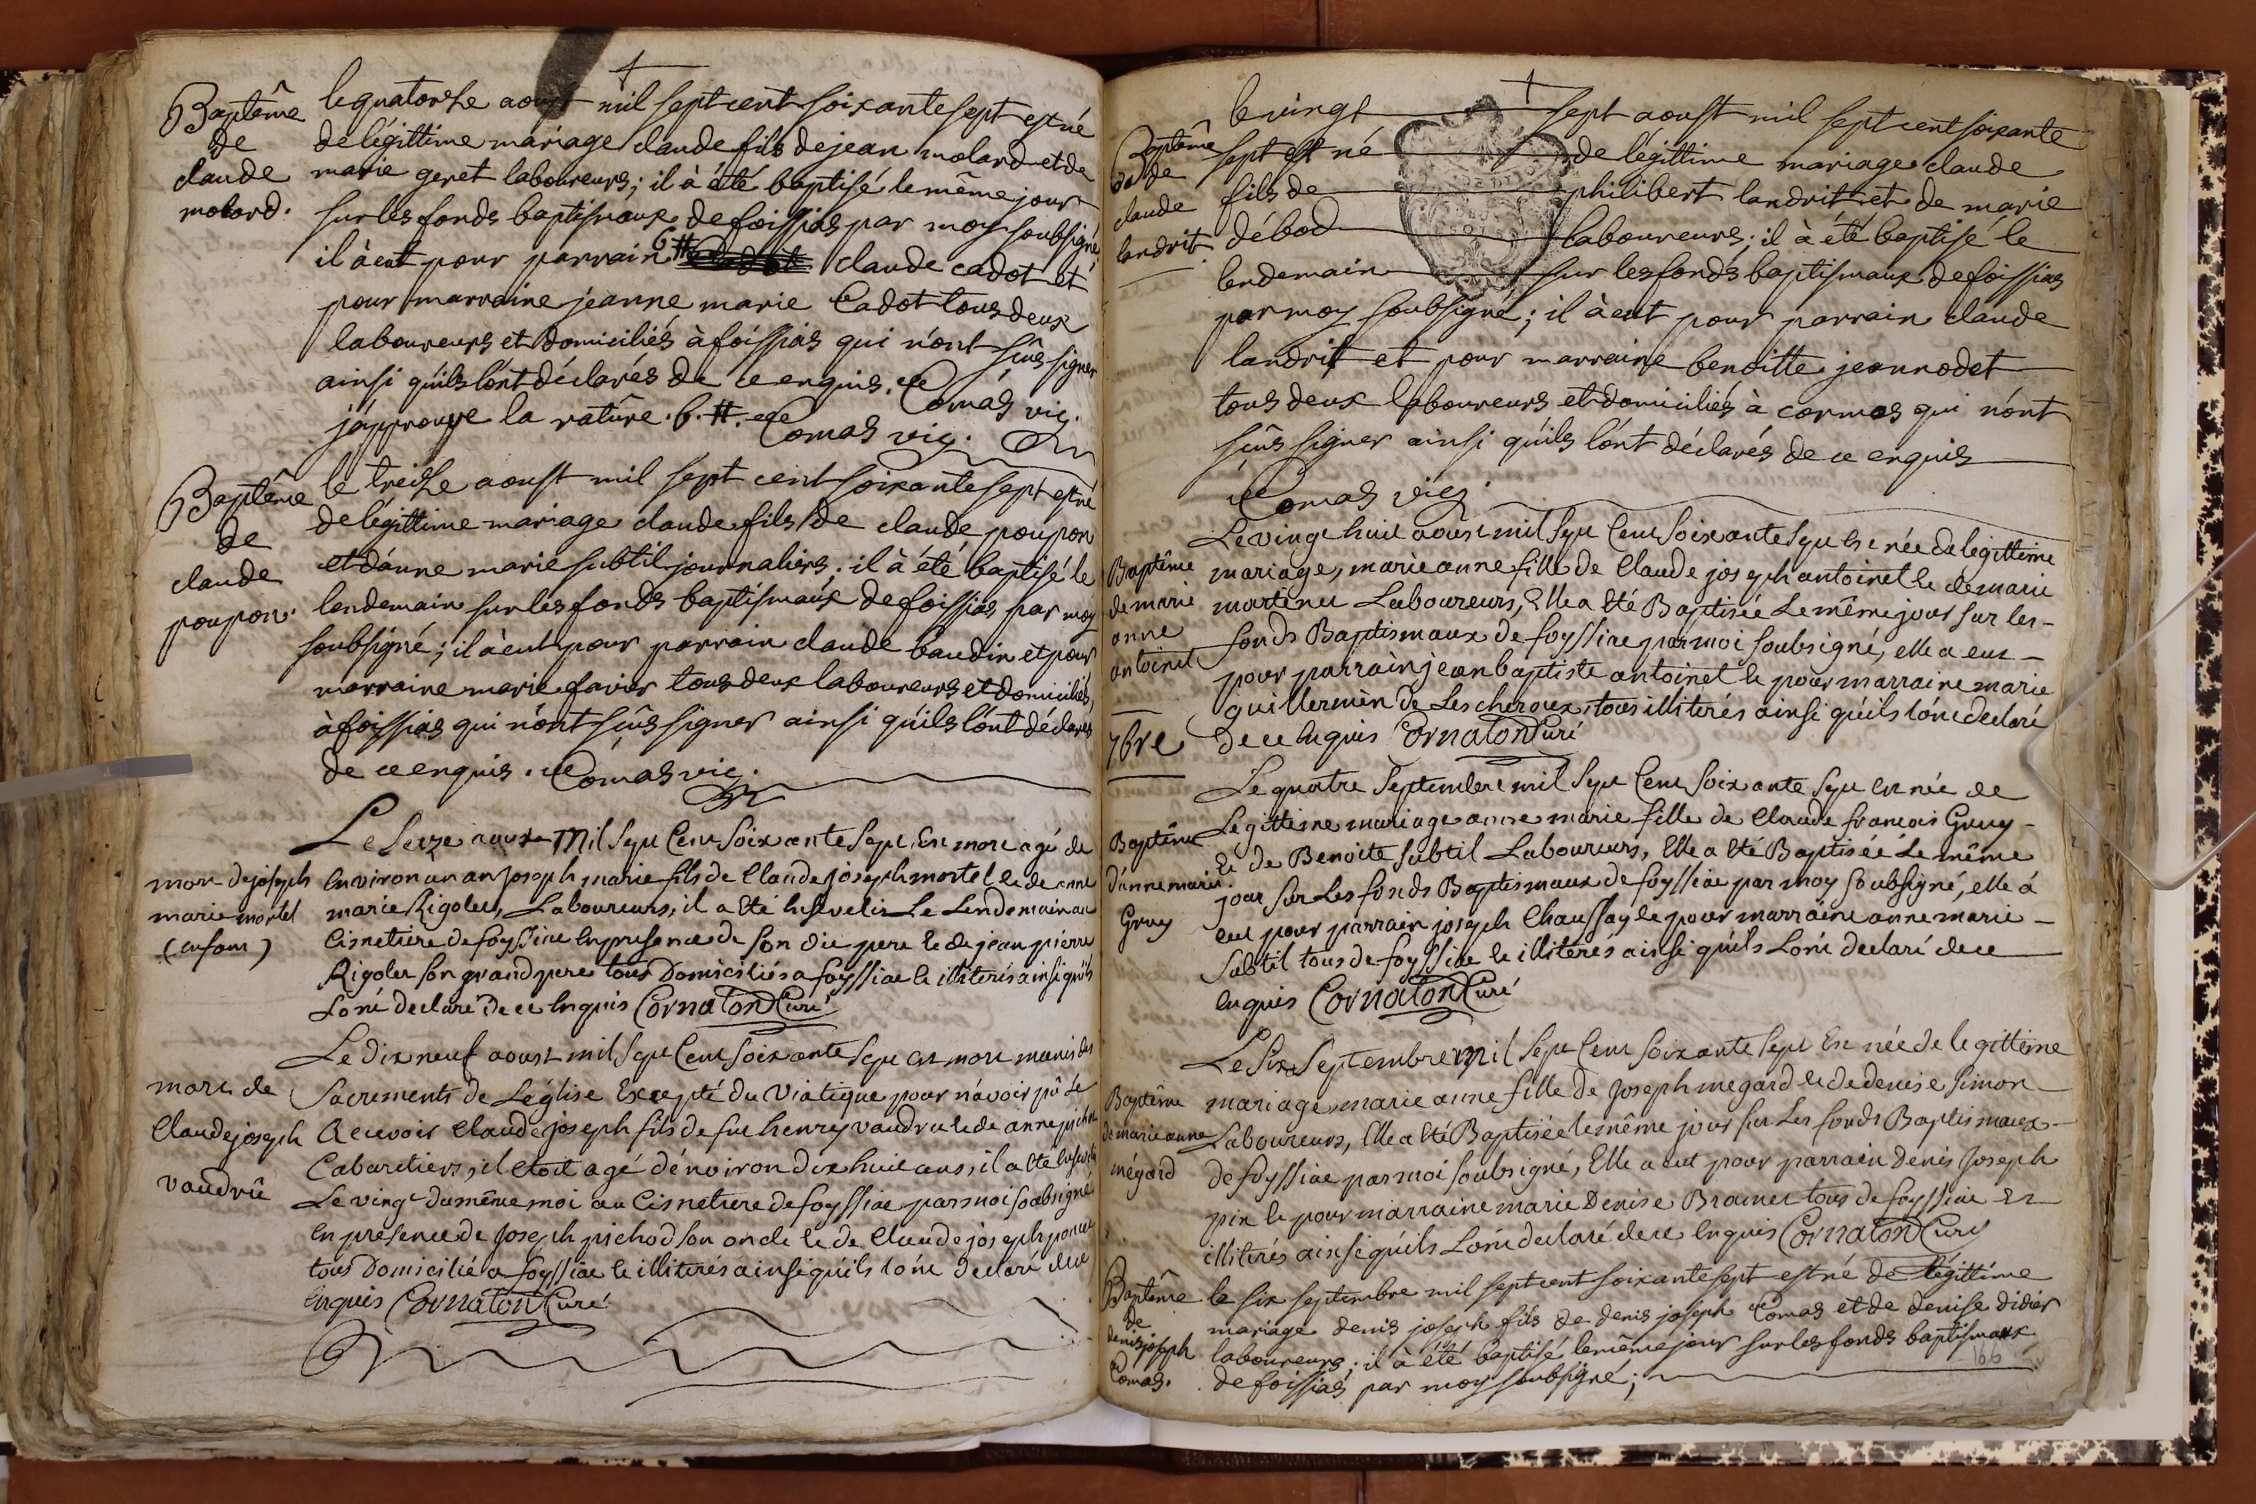 Baptême
de
claude
molard.
le quatorze aoust mil sept cent soixante sept est né
de légittime mariage claude fils de jean molard et de
marie geret laboureurs; il à été baptisé le même jour
sur les fonds baptismaux de foissias par moy soubsigné,
il à eut pour parrain claude cadot et
pour marraine jeanne marie Cadot tous deux
laboureurs et domiciliés à foissias qui n'ont sçûs signer
ainsi qu'ils l'ont déclarés de ce enquis. Comas vic.
j'approuve la ratûre. Comas vic.
Baptême
de
claude
poupon.
le treize aoust mil sept cent soixante sept est né
de légittime mariage claude fils de claude poupon
et d'anne marie subtil journaliers; il à été baptisé le
lendemain sur les fonds baptismaux de foissias par moy
soubsigné; il à eut pour parrain claude baudin et pour
marraine marie favier tous deux laboureurs et domiciliés
à foissias qui n'ont sçûs signer ainsi qu'ils l'ont déclarés
de ce enquis. Comas vic.
mort de joseph
marie mortel
(enfant)
Le Seize aoust Mil Sept Cent Soixante Sept Est mort agé de
Environ un an Joseph marie fils de Claude joseph mortel et de anne
marie Rigolet, Laboureurs, il a Eté Ensevelis Le Lendemain au
Cismetiere de foyssiat En presence de Son dit pere et de jean pierre
Rigolet Son grand pere tous Domiciliés a foyssiat et illiterés ainsi qu'ils
Lont declaré De ce Enquis Cornaton Curé
mort de
Claude joseph
vaudrû
Le dix neuf aoust mil Sept Cent Soixante Sept est mort munis des
Sacrements de L'église Excepté du Viatique pour n'avoir pû Le
Recevoir Claude joseph fils de fut henry vaudru et de anne pichod
Cabaretiers, il Etoit agé d'environ dix huit ans, il a Eté Enseveli
Le vingt du même moi au Cismetiere de foyssiat par moi soubsigné
En presence de Joseph pichod Son oncle et de Claude joseph poncet
tous Domicilié a foyssiat et illiterés ainsi qu'ils lont Declaré de ce
Enquis Cornaton Curé
Baptême
de
claude
landrit.
le vingt sept aoust mil sept cent soixante
sept est né de légittime mariage claude
fils de philibert landrit et de marie
débod laboureurs; il à été baptisé le
lendemain sur les fonds baptismaux de foissias
par moy soubsigné; il à eut pour parrain claude
landrit et pour marraine benoitte jeannodet
tous deux laboureurs et domiciliés à cormos qui n'ont
sçûs signer ainsi qu'ils l'ont déclarés de ce enquis
Comas vic.
Baptême
de marie
anne
antoinet
Le vingt huit aoust mil Sept Cent Soixante Sept Est née de légittime
mariage, marie anne fille de Claude joseph antoinet et de marie
martinet Laboureurs, Elle a Eté Baptisée Le même jour sur les
fonds Baptismaux de foyssiat par moi soubsigné, elle a eut
pour parrain jean baptiste antoinet et pour marraine marie
guillermin de Lescheroux, tous illiterés ainsi qu'ils lont declaré
de ce Enquis Cornaton Curé
7bre
Baptême
d'anne marie
Gruy
Le quatre Septembre mil Sept Cent Soixante Sept est née de
Legittime mariage anne marie fille de Claude francois Gruy
Et de Benoite Subtil Laboureurs, Elle a Eté Baptisée Le même
jour Sur Les fonds Baptismaux de foyssiat par moy Soubsigné, elle a
eut pour parrain joseph Chaussay et pour marraine anne marie
Subtil tous de foyssiat et illiterés ainsi qu'ils Lont declaré de ce
Enquis Cornaton Curé
Baptême
de marie anne
mégard
Le Six Septembre mil Sept Cent Soixante Sept Est née de legittime
mariage, marie anne fille de Joseph megard et de denise Simon
Laboureurs, Elle a Eté Baptisée le même jour sur Les fonds Baptismaux
de foyssiat par moi soubsigné, Elle a eut pour parrain Denis Joseph
pin et pour marraine marie Denise Bramet tous de foyssiat Et
illiterés ainsi qu'ils Lont declaré de ce Enquis Cornaton Curé
Baptême
de
denis joseph
Comas.
le six septembre mil sept cent soixante sept est né de légittime
mariage denis joseph fils de denis joseph Comas et de denise didier
laboureurs; il à été baptisé le même jour sur les fonds baptismaux
de foissias par moy soubsigné;
166